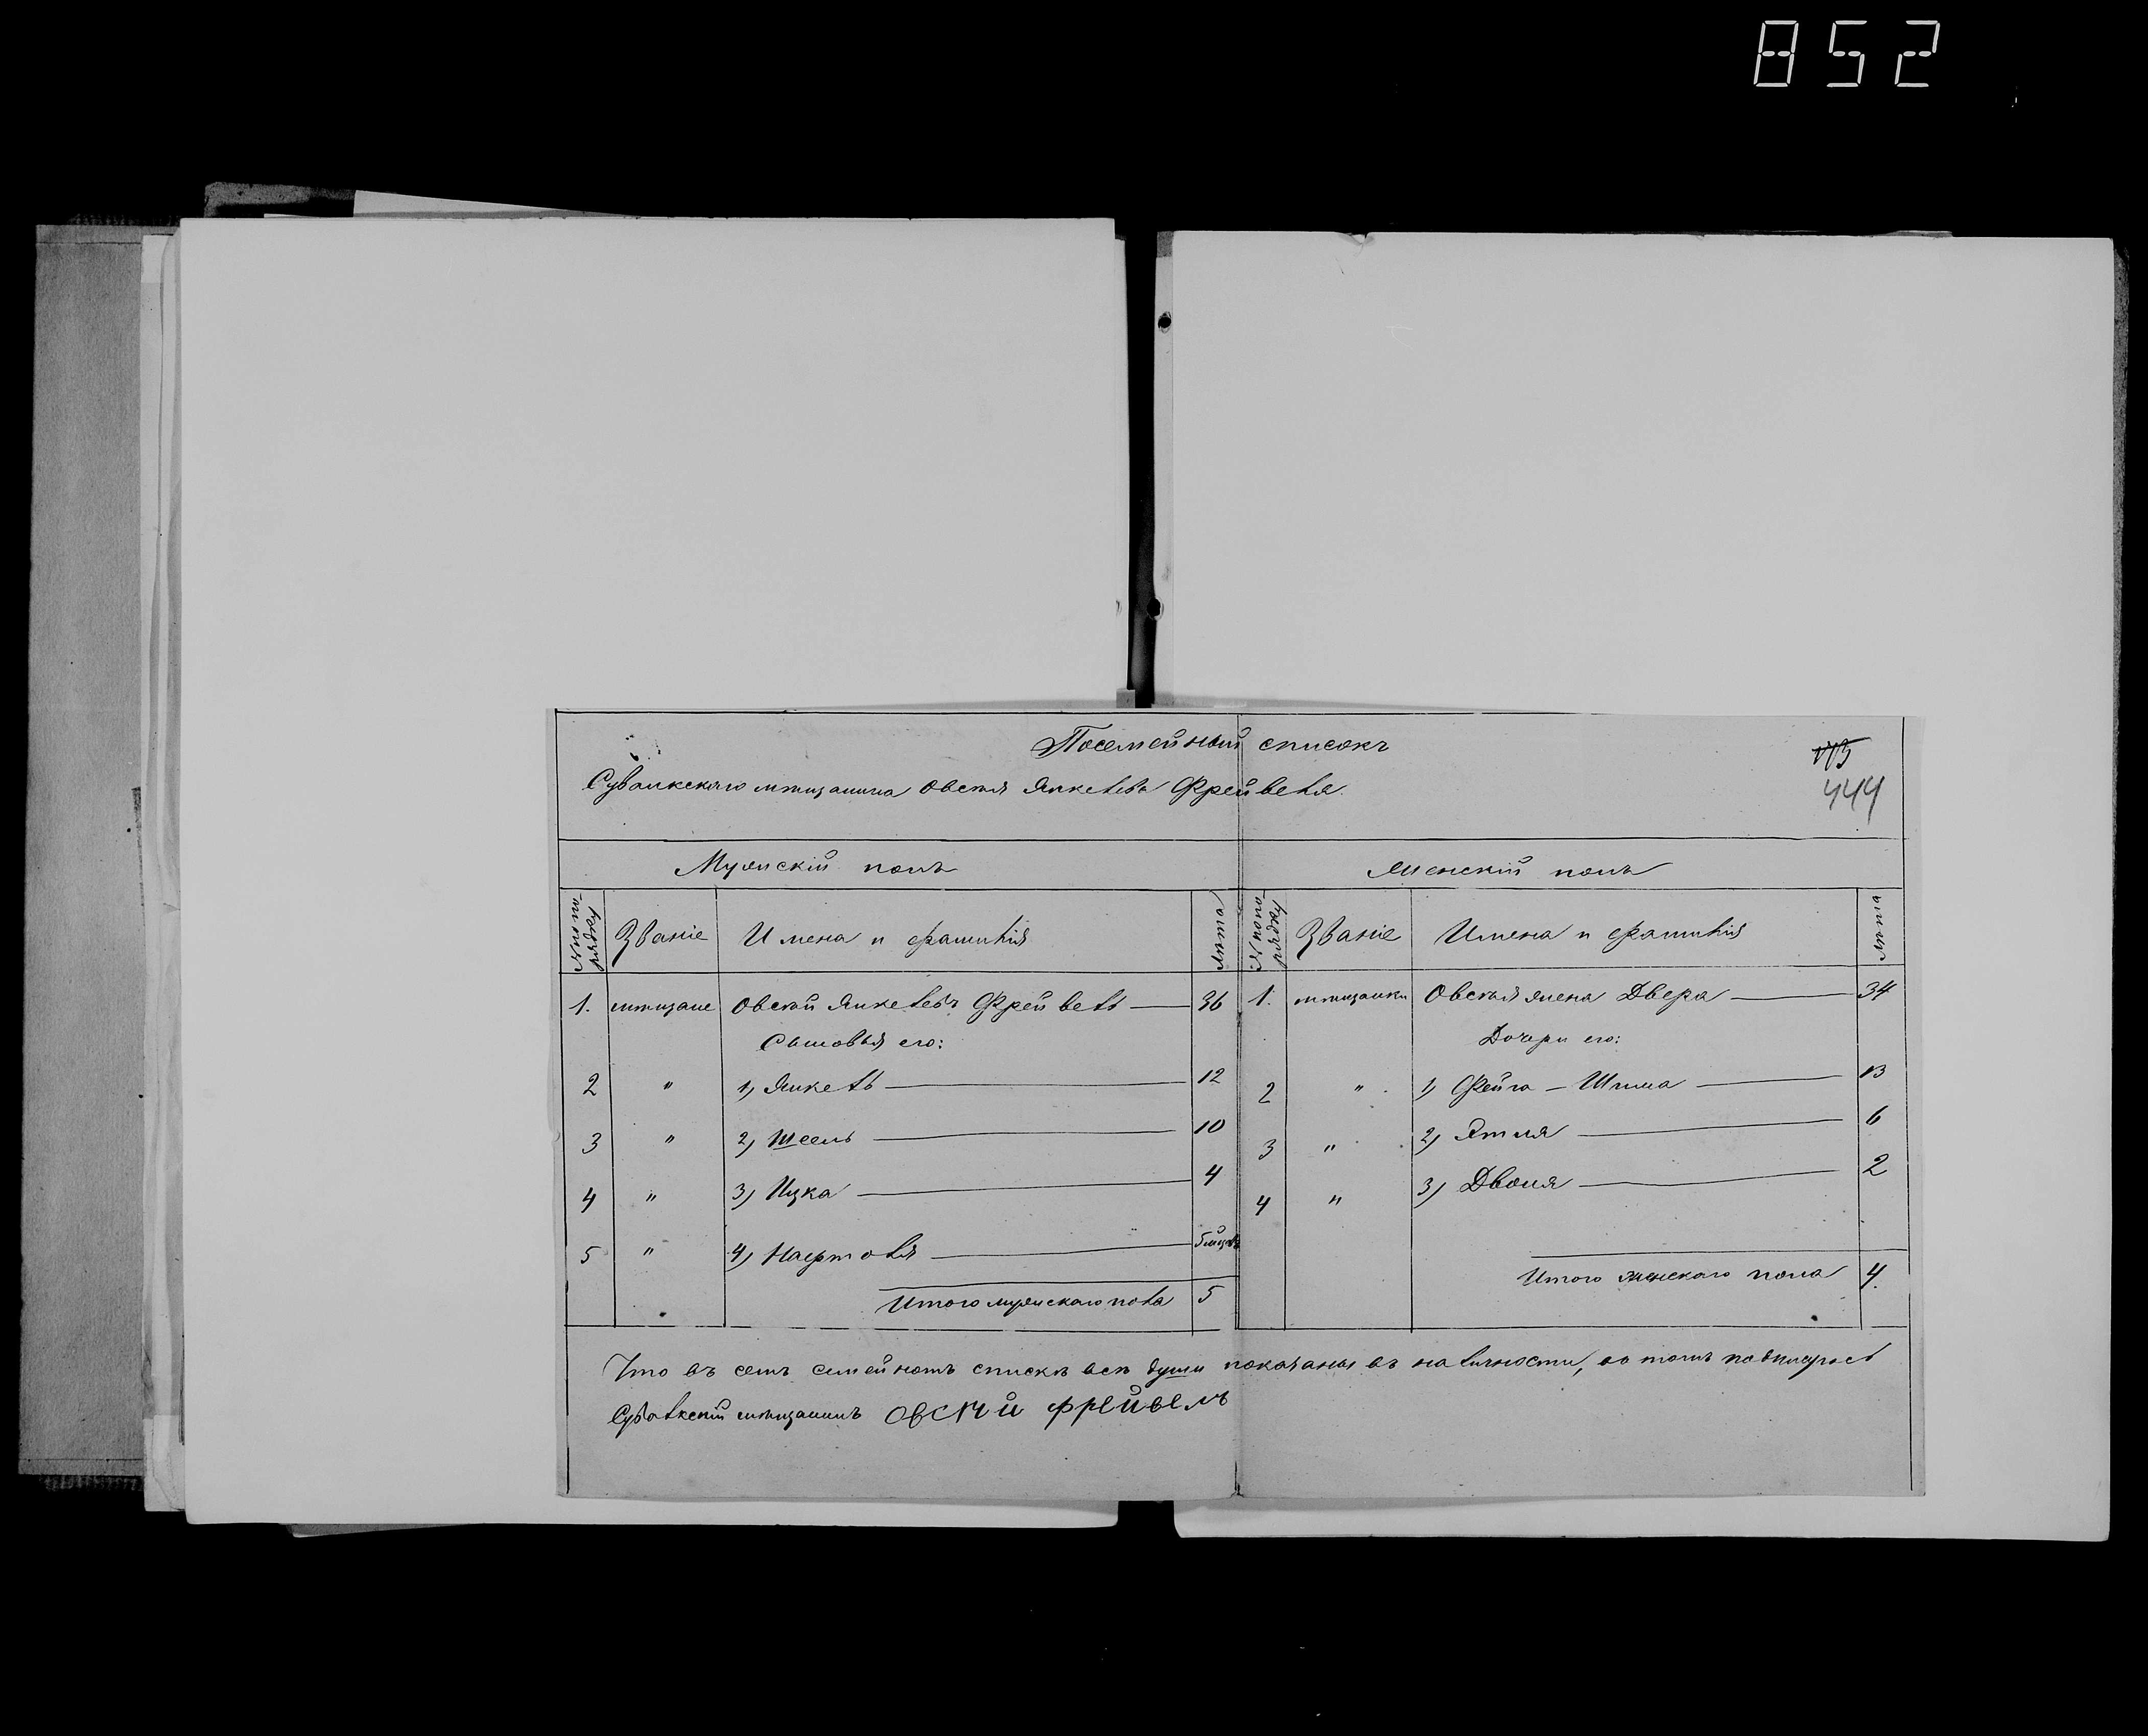 852
Посемейный списокъ
175
444
Сувалкскаго мѣщанина Овсѣя Янкелева Фрейвеля.
Мужскій полъ
Женскій полъ
№ по порядку
Званіе
Имена и фамилія
Лѣта
№ по порядку
Званіе
Имена и фамилія
Лѣта
1. мѣщане Овсѣй Янкелевъ Фрейвель — 36
1. мѣщанки Овсѣя жена Двера — 34
Сыновья его:
Дочери его:
2 " 1) Янкель — 12
2 " 1) Фейга - Шима — 13
3 " 2) Шеель — 10
3 " 2) Этля — 6
4 " 3) Ицка — 4
4 " 3) Двоня — 2
5 " 4) Нафтоля — 5 мѣсяц.
Итого мужскаго пола 5
Итого женскаго пола 4.
Что въ семъ семейномъ спискѣ всѣ души показаны въ наличности, въ томъ подписуюсь
Сувалкскій мѣщанинъ Овсѣй Фрейвелъ